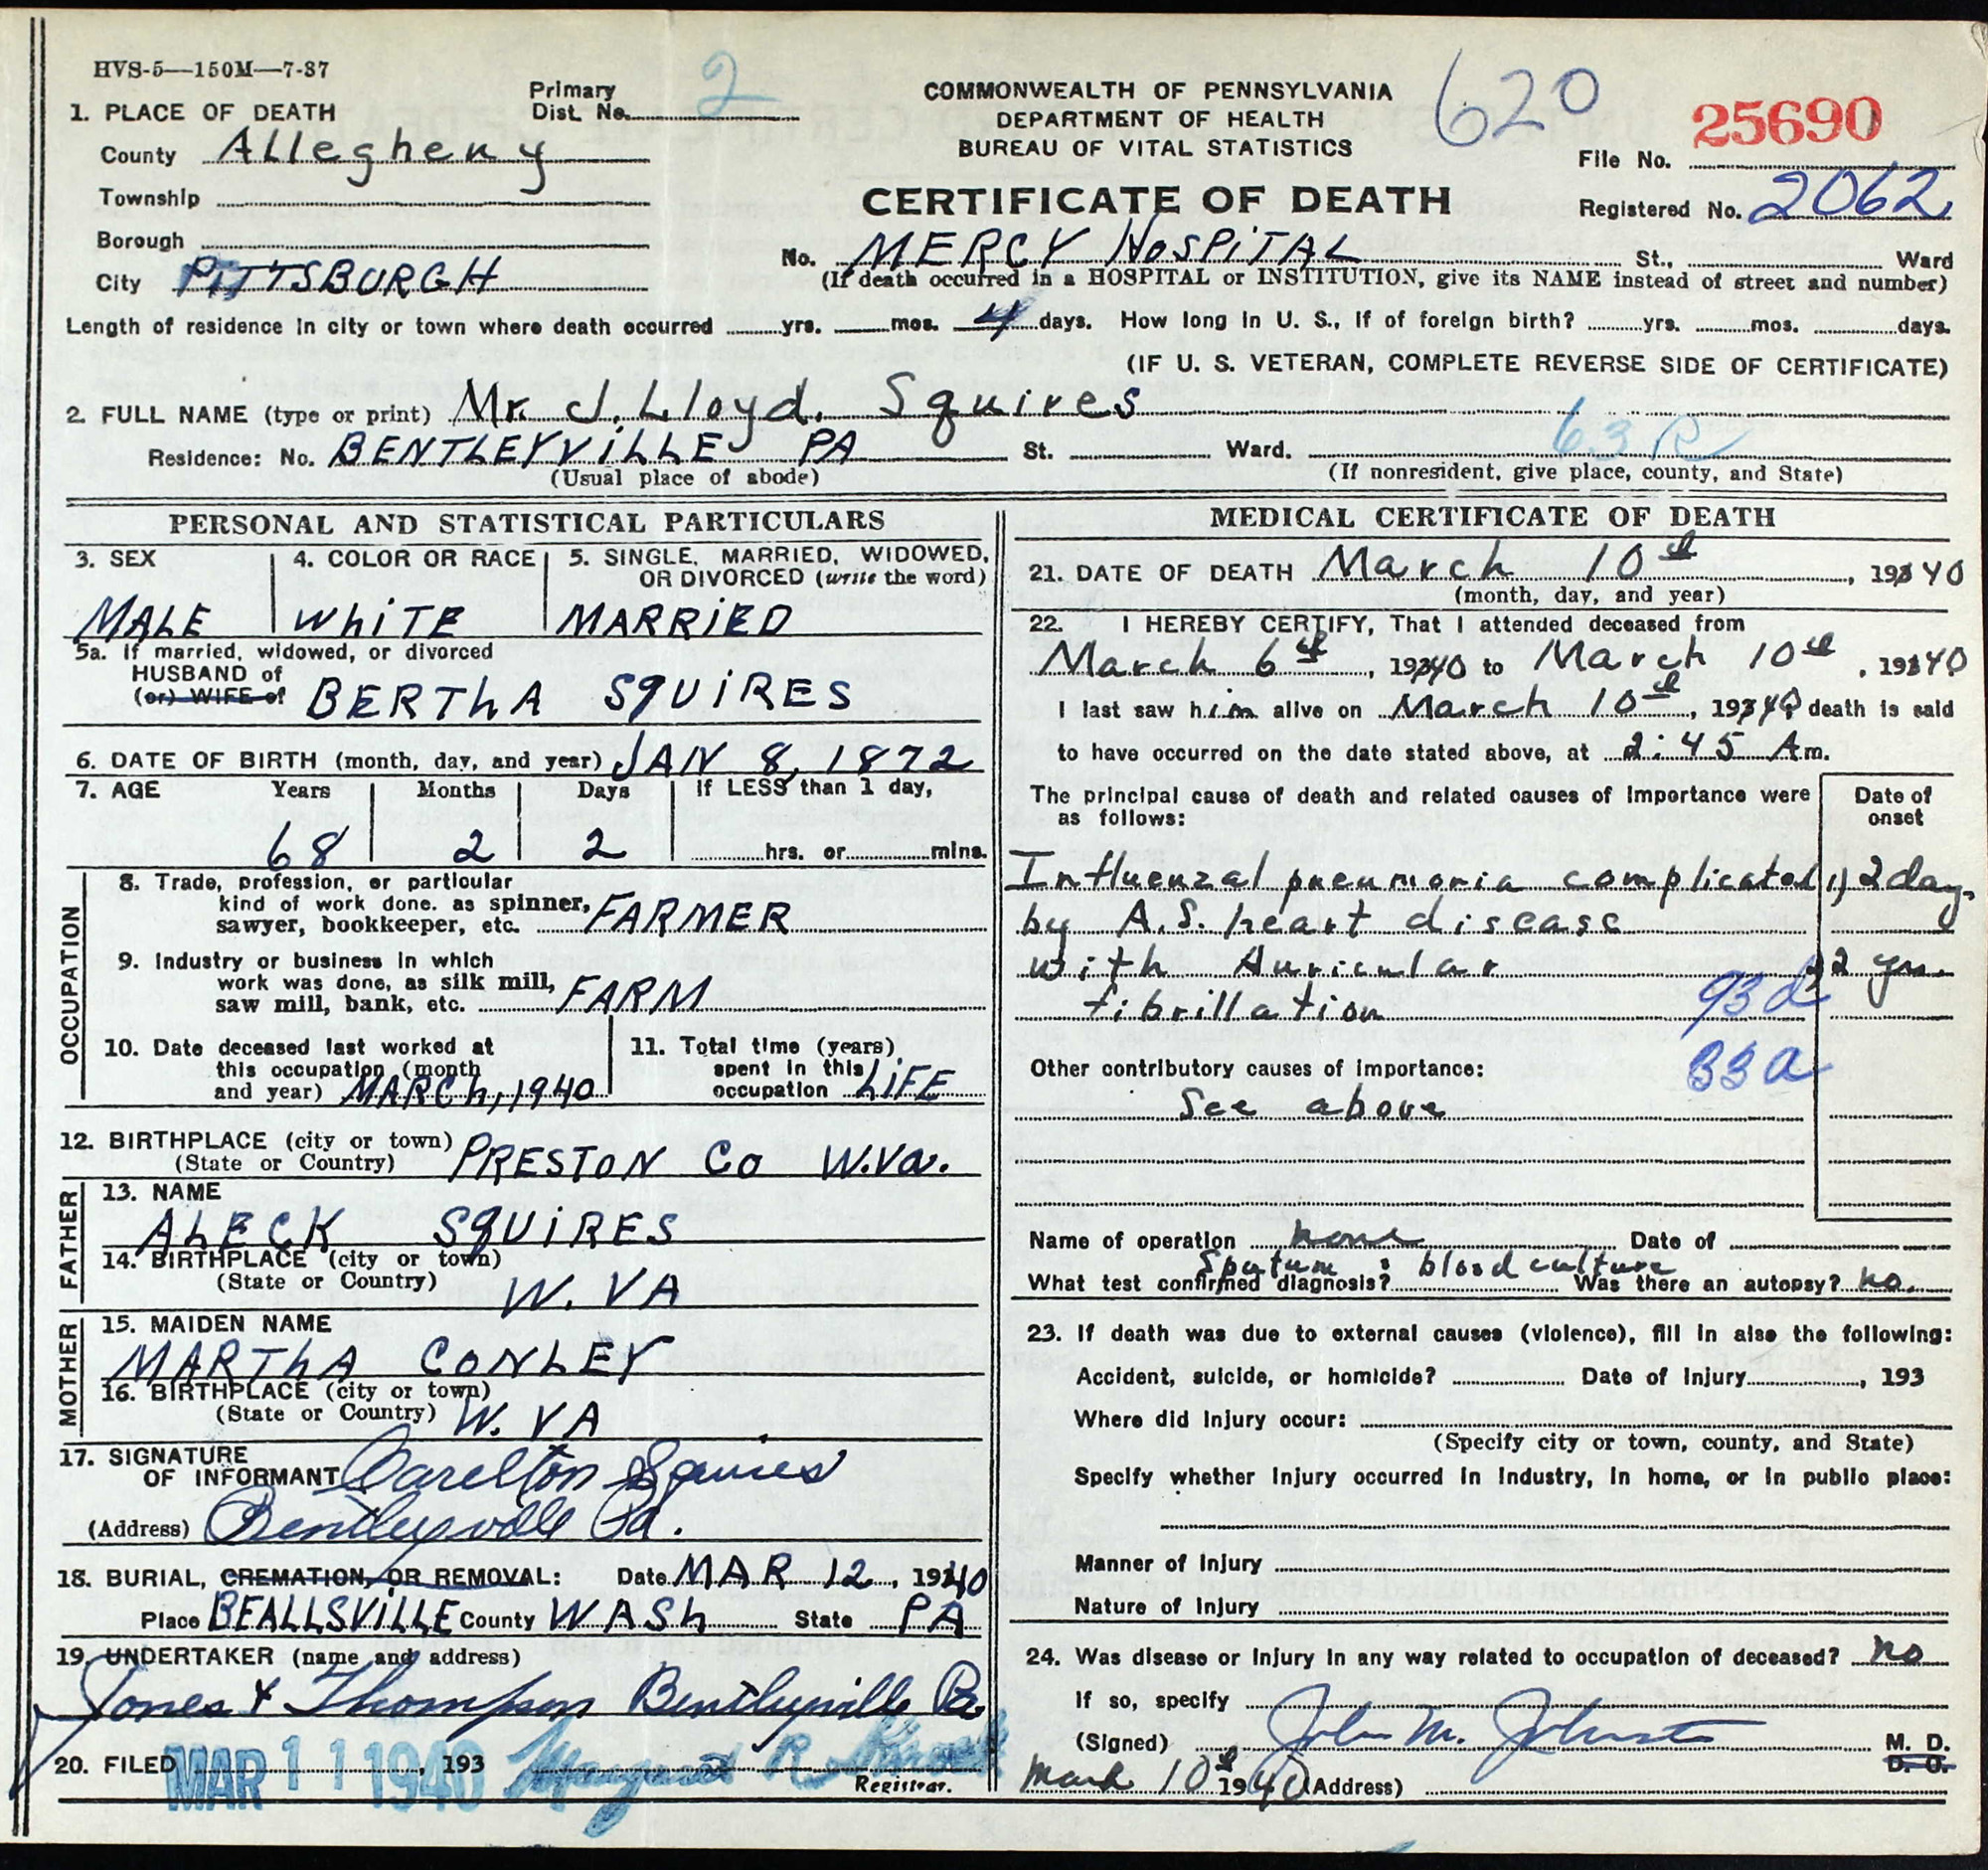 HVS-5—150M—7-37
Primary
Dist. No. 2
1. PLACE OF DEATH
County Allegheny
Township
Borough
City PITTSBURGH
COMMONWEALTH OF PENNSYLVANIA
DEPARTMENT OF HEALTH
BUREAU OF VITAL STATISTICS
620
25690
File No.
CERTIFICATE OF DEATH
Registered No. 2062
No. MERCY HOSPITAL St., Ward
(If death occurred in a HOSPITAL or INSTITUTION, give its NAME instead of street and number)
Length of residence in city or town where death occurred yrs. mos. 4 days. How long in U. S., if of foreign birth? yrs. mos. days.
(IF U. S. VETERAN, COMPLETE REVERSE SIDE OF CERTIFICATE)
2. FULL NAME (type or print) Mr. J. Lloyd. Squires
Residence: No. BENTLEYVILLE PA St. Ward. 63 R
(Usual place of abode) (If nonresident, give place, county, and State)
PERSONAL AND STATISTICAL PARTICULARS
3. SEX 4. COLOR OR RACE 5. SINGLE, MARRIED, WIDOWED,
OR DIVORCED (write the word)
MALE WhiTE MARRiED
5a. If married, widowed, or divorced
HUSBAND of
(or) WIFE of BERThA SQUIRES
6. DATE OF BIRTH (month, day, and year) JAN 8, 1872
7. AGE Years Months Days If LESS than 1 day,
68 2 2 hrs. or mins.
OCCUPATION
8. Trade, profession, or particular
kind of work done, as spinner,
sawyer, bookkeeper, etc. FARMER
9. Industry or business in which
work was done, as silk mill,
saw mill, bank, etc. FARM
10. Date deceased last worked at
this occupation (month
and year) MARCh, 1940
11. Total time (years)
spent in this
occupation LIFE
12. BIRTHPLACE (city or town)
(State or Country) PRESTON Co W.Va.
FATHER
13. NAME
ALECK SQUIRES
14. BIRTHPLACE (city or town)
(State or Country) W. VA
MOTHER
15. MAIDEN NAME
MARThA CONLEY
16. BIRTHPLACE (city or town)
(State or Country) W. VA
17. SIGNATURE
OF INFORMANT Carelton Squires
(Address) Bentleyville Pa.
18. BURIAL, CREMATION, OR REMOVAL: Date MAR 12, 1940
Place BEALLSVILLE County WASh State PA
19. UNDERTAKER (name and address)
Jones & Thompson Bentleyville Pa
20. FILED MAR 11 1940, 193 Margaret R.
Registrar.
MEDICAL CERTIFICATE OF DEATH
21. DATE OF DEATH March 10th, 1940
(month, day, and year)
22. I HEREBY CERTIFY, That I attended deceased from
March 6th, 1940 to March 10th, 1940
I last saw him alive on March 10th, 1940, death is said
to have occurred on the date stated above, at 2:45 Am.
The principal cause of death and related causes of importance were
as follows:
Date of
onset
Influenzal pneumonia complicated 1) 2 days
by A.S. heart disease
with Auricular 2 yrs.
fibrillation 93d
33a
Other contributory causes of importance:
See above
Name of operation none Date of
Sputum : blood culture
What test confirmed diagnosis? Was there an autopsy? no.
23. If death was due to external causes (violence), fill in also the following:
Accident, suicide, or homicide? Date of Injury , 193
Where did Injury occur:
(Specify city or town, county, and State)
Specify whether Injury occurred in Industry, in home, or in public place:
Manner of Injury
Nature of Injury
24. Was disease or Injury in any way related to occupation of deceased? no
If so, specify
(Signed) John M. Johnston M. D.
D. O.
March 10th 1940 (Address)